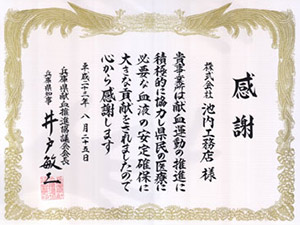 感謝
株式会社 池内工務店 様
貴事業所は献血運動の推進に
積極的に協力し県民の医療に
必要な血液の安定確保に
大きな貢献をされましたので
心から感謝します
平成二十二年 八月二十五日
兵庫県献血推進協議会会長
兵庫県知事 井戸敏三